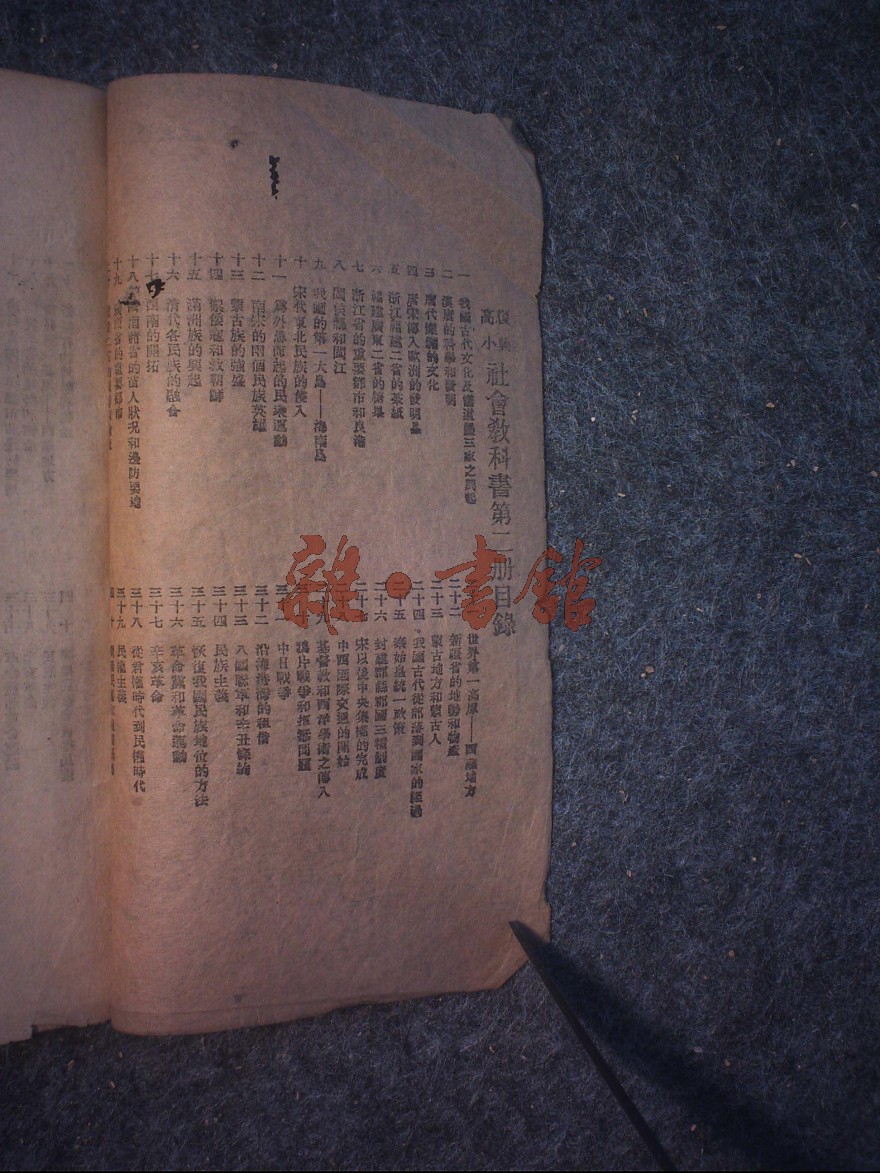 復興
高小
社會教科書第二册目錄
一 我國古代文化及儒道墨三家之興起
二 漢唐的科學和發明
三 唐代燦爛的文化
四 唐宋傳入歐洲的發明品
五 浙江福建二省的茶紙
六 福建廣東二省的糖果
七 浙江省的重要都市和良港
八 閩侯縣和閩江
九 我國的第一大島——海南島
十 宋代東北民族的侵入
十一 為外患而起的民衆運動
十二 南宋的兩個民族英雄
十三 蒙古族的強盛
十四 禦倭寇和救朝鮮
十五 滿洲族的興起
十六 清代各民族的融合
十七 西南的開拓
十八 西南諸省的苗人狀況和邊防要地
十九 省的重要都市
二十二 世界第一高原——西藏地方
新疆省的地勢和物產
二十三 蒙古地方和蒙古人
二十四 我國古代從部落到國家的經過
二十五 秦始皇統一政策
二十六 封建郡縣郡國三種制度
二十七 宋以後中央集權的完成
中西國際交通的開始
基督教和西洋學術之傳入
三十 鴉片戰爭和拒毒問題
三十一 中日戰爭
三十二 沿海港灣的租借
三十三 八國聯軍和辛丑條約
三十四 民族主義
三十五 恢復我國民族地位的方法
三十六 革命黨和革命運動
三十七 辛亥革命
三十八 從君權時代到民權時代
三十九 民權主義
四十
雜·書館